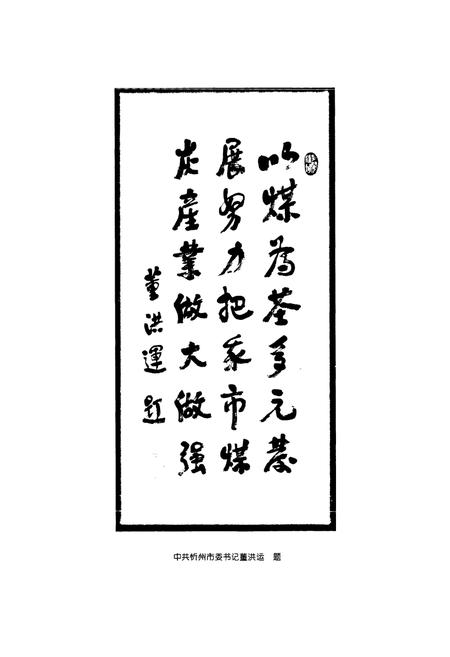 以煤為基多元發
展努力把我市煤
炭產業做大做强
董洪運 题
中共忻州市委书记董洪运 题